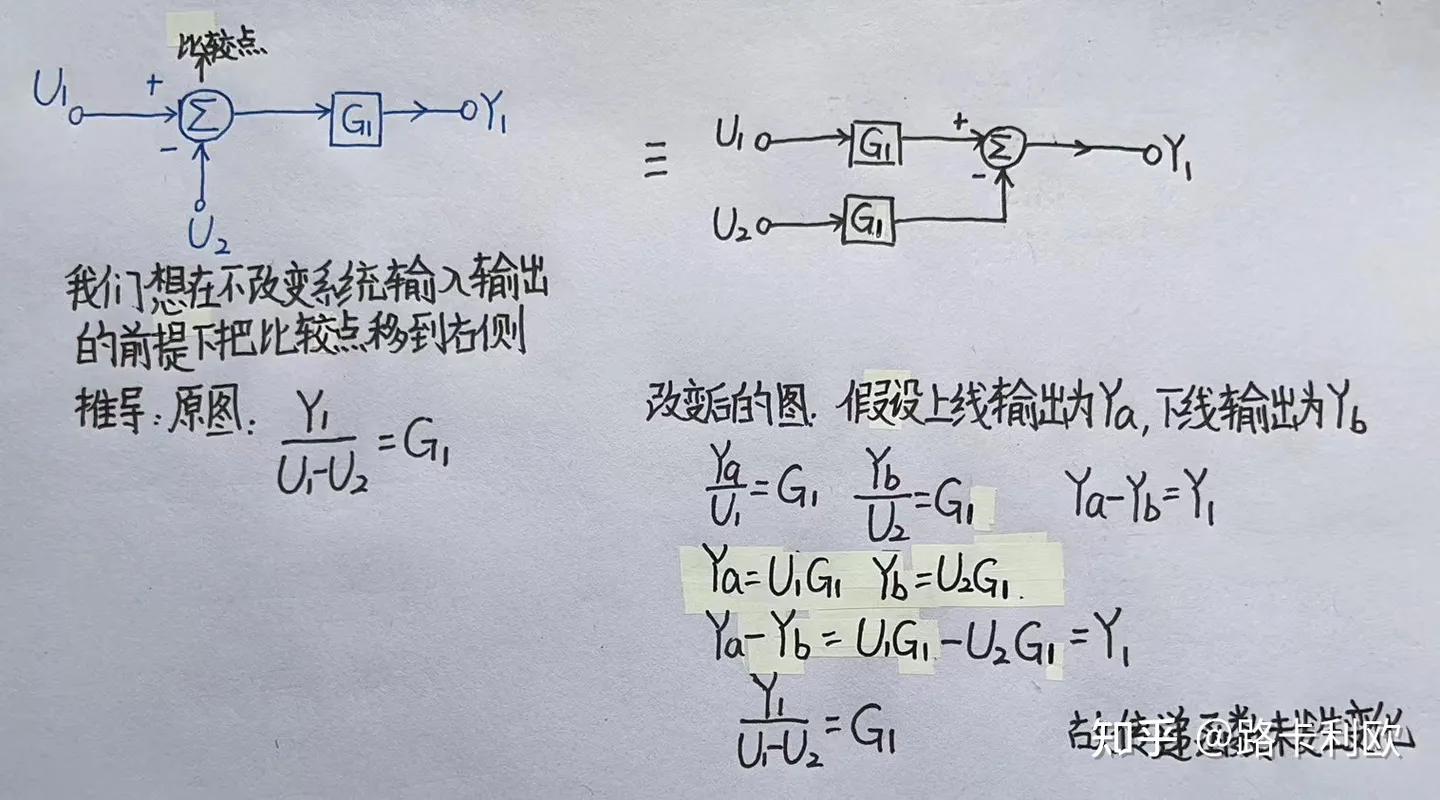 比较点
U₁ + Σ G₁ Y₁
-
U₂
≡
U₁ G₁ + Σ Y₁
-
U₂ G₁
我们想在不改变系统输入输出
的前提下把比较点移到右侧
推导:原图: Y₁/(U₁-U₂) = G₁
改变后的图. 假设上线输出为Ya,下线输出为Yb
Ya/U₁ = G₁ Yb/U₂ = G₁ Ya-Yb=Y₁
Ya=U₁G₁ Yb=U₂G₁.
Ya-Yb = U₁G₁-U₂G₁ = Y₁
Y₁/(U₁-U₂) = G₁
知乎 @路卡利欧